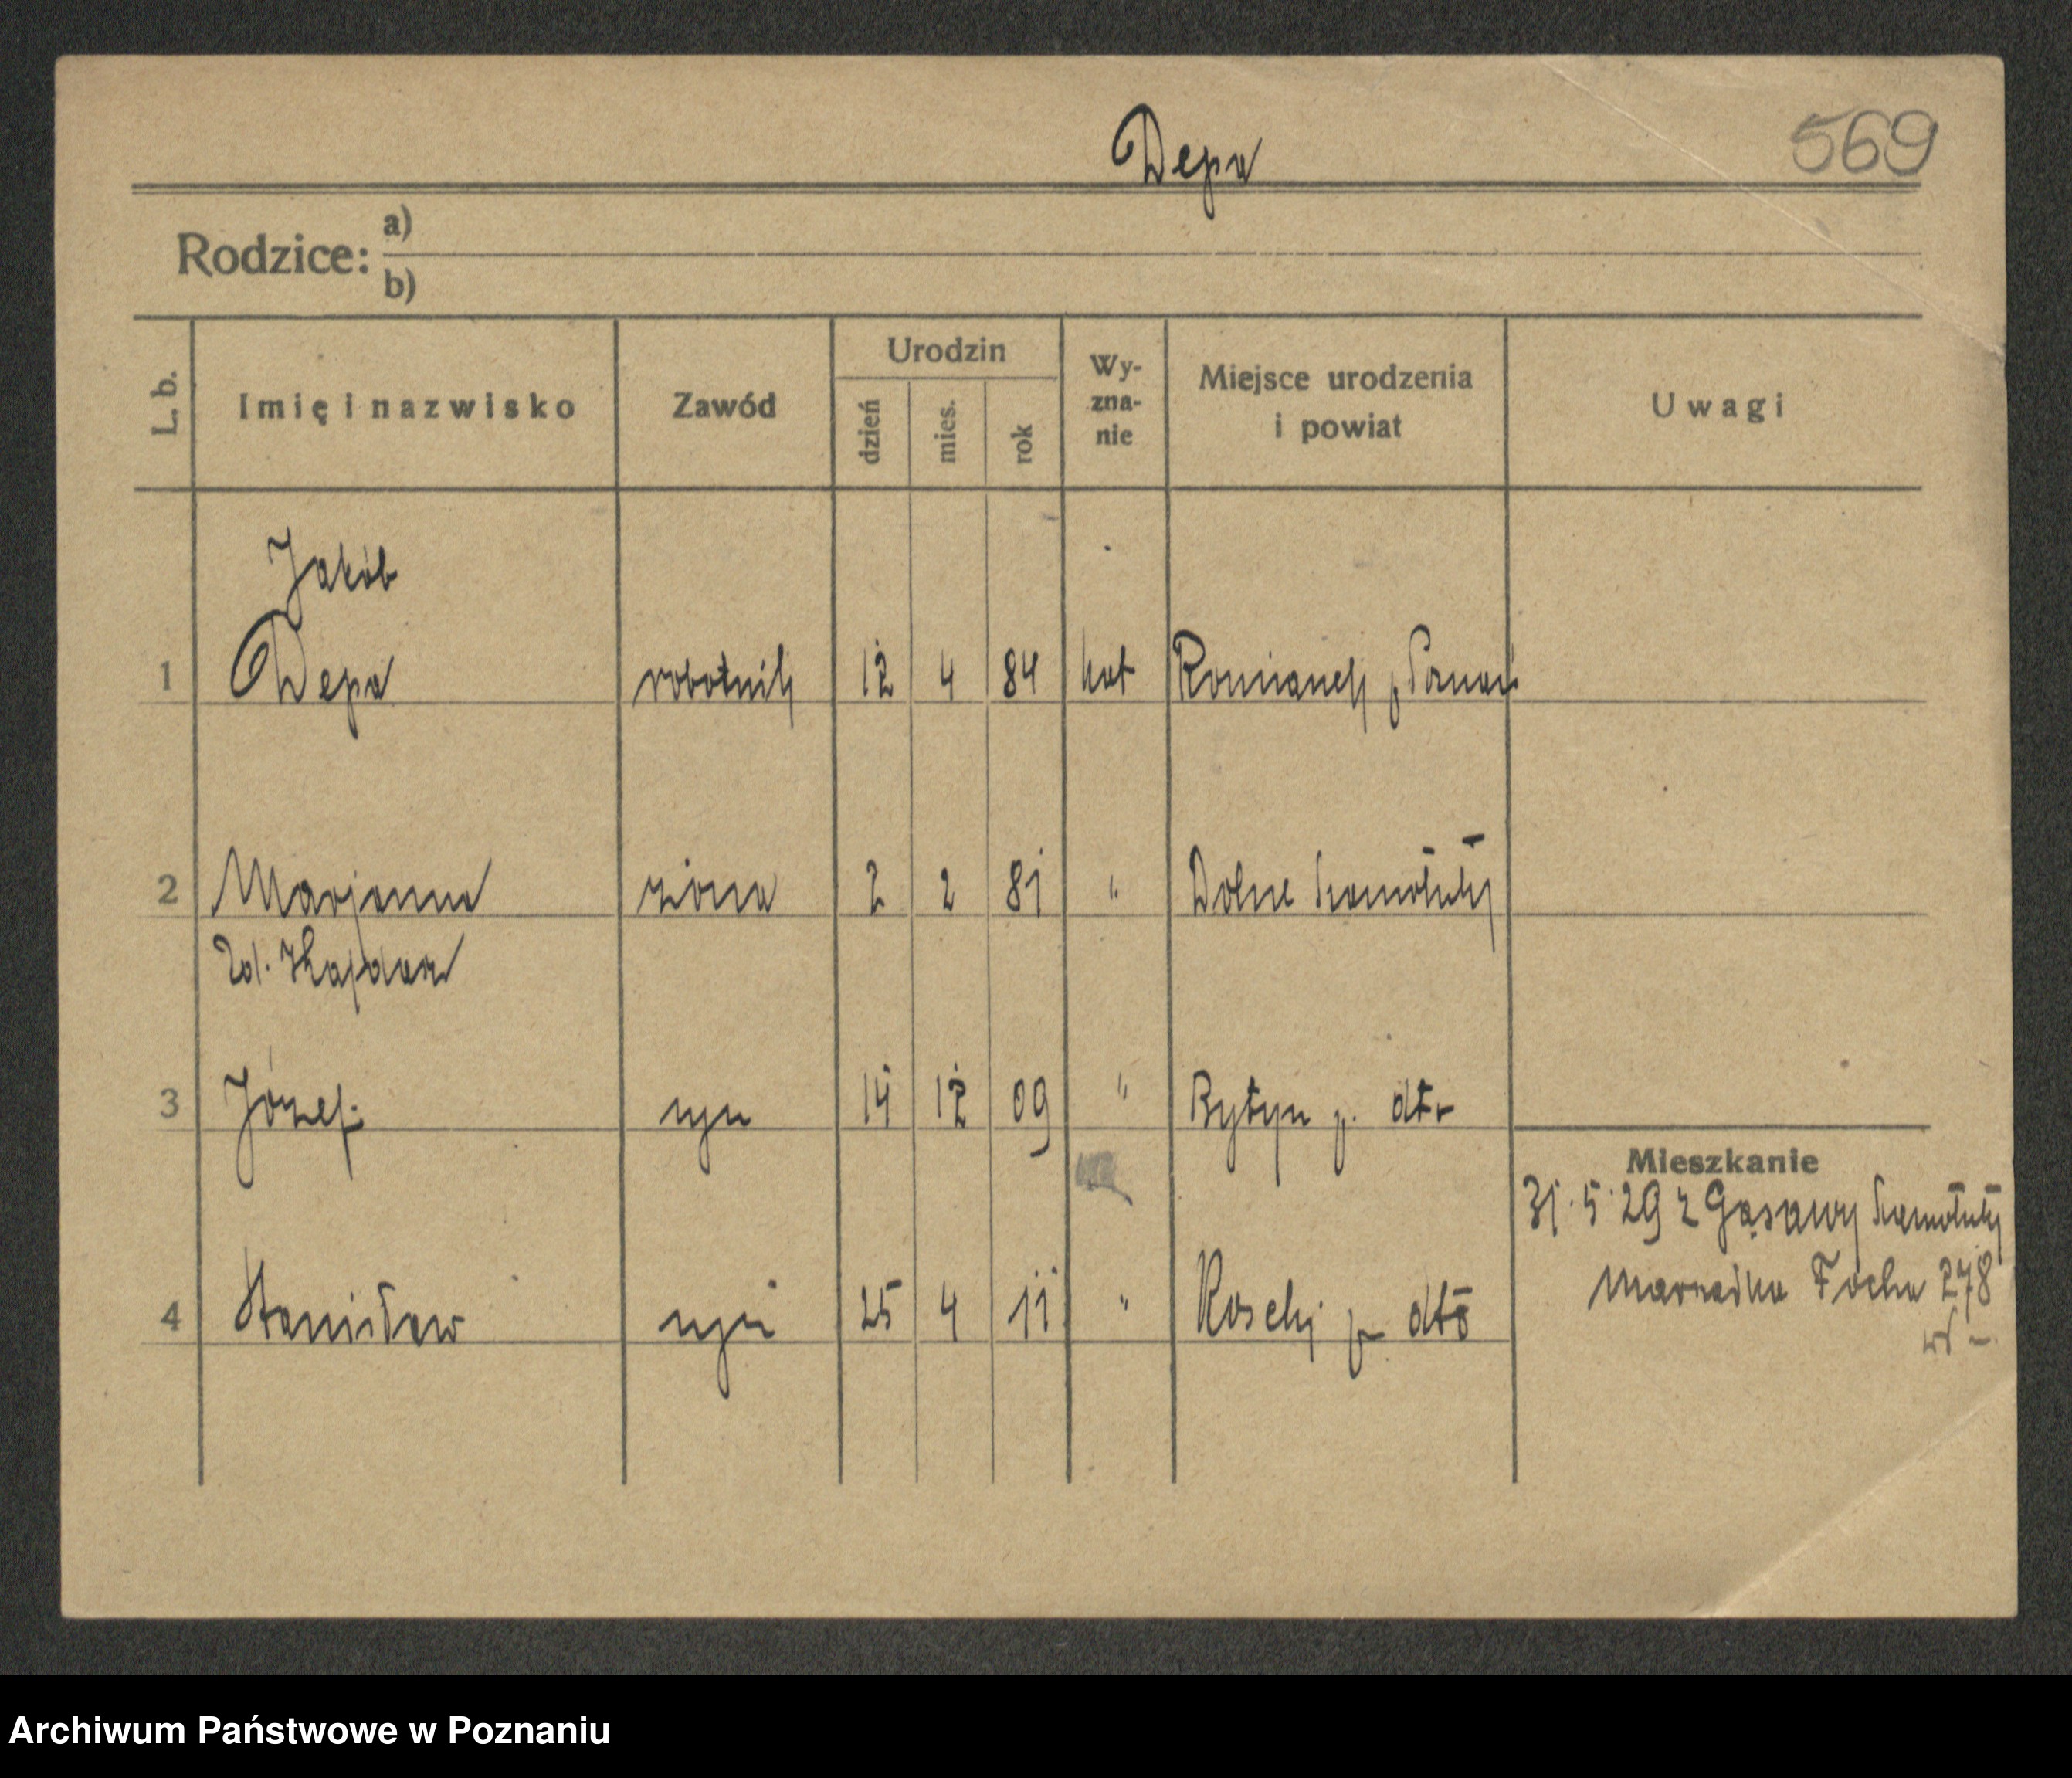 Depa
569
Rodzice: a)
b)
L. b. Imię i nazwisko Zawód Urodzin dzień mies. rok Wy-zna-nie Miejsce urodzenia i powiat Uwagi
Jakób
1 Depa robotnik 12 4 84 kat
2 Marjanna żona 2 2 81 " Dolne Szamotuły
Józef
3 syn 14 12 09 " Bytyn p. dto
Mieszkanie
31.5.29 z Gąsawy Szamotuły
4 Stanisław syn 25 4 11 " p dto
Marszałka Focha 278
Archiwum Państwowe w Poznaniu